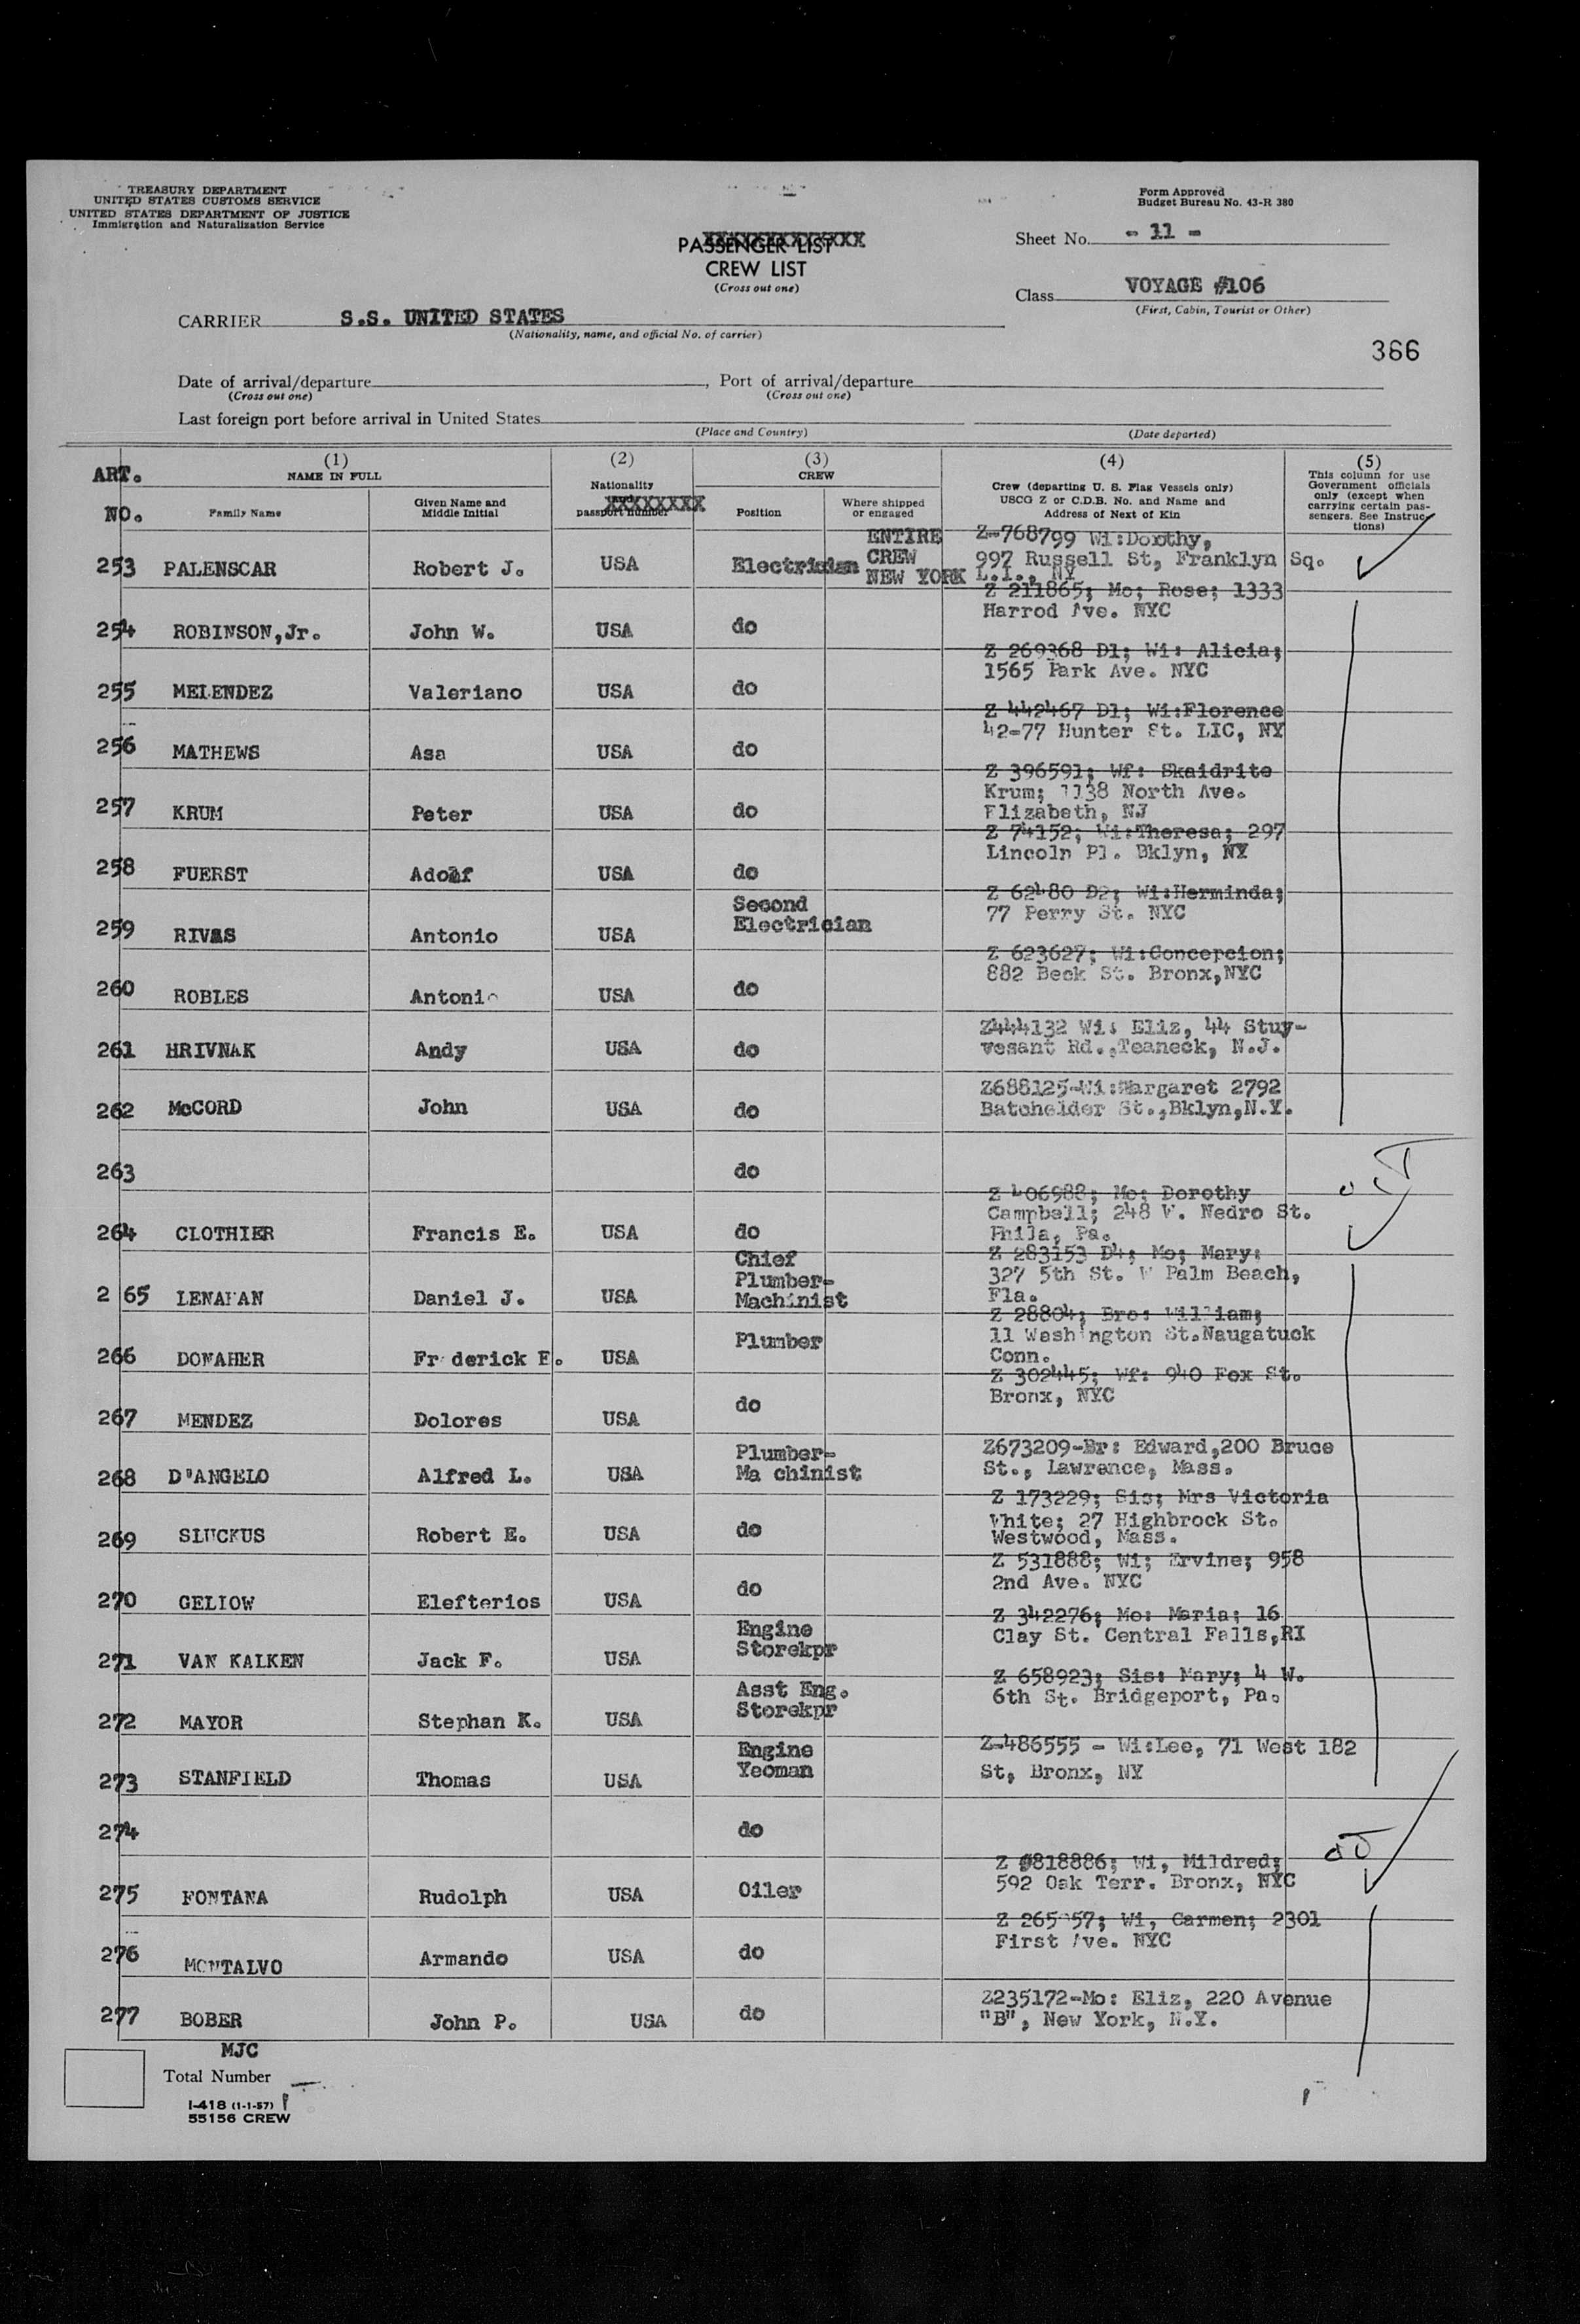 TREASURY DEPARTMENT
UNITED STATES CUSTOMS SERVICE
UNITED STATES DEPARTMENT OF JUSTICE
Immigration and Naturalization Service
Form Approved
Budget Bureau No. 43-R 380
PASSENGER LIST
CREW LIST
(Cross out one)
Sheet No. - 11 -
Class VOYAGE #106
(First, Cabin, Tourist or Other)
CARRIER S.S. UNITED STATES
(Nationality, name, and official No. of carrier)
366
Date of arrival/departure , Port of arrival/departure
(Cross out one) (Cross out one)
Last foreign port before arrival in United States
(Place and Country) (Date departed)
ART. NO.
(1) NAME IN FULL
Family Name
Given Name and Middle Initial
(2) Nationality and passport number
(3) CREW
Position
Where shipped or engaged
(4)
Crew (departing U. S. Flag Vessels only)
USCG Z or C.D.B. No. and Name and
Address of Next of Kin
(5)
This column for use
Government officials
only (except when
carrying certain pas-
sengers. See Instruc-
tions)
253 PALENSCAR Robert J. USA Electrician ENTIRE CREW NEW YORK Z-768799 Wi:Dorothy,
997 Russell St, Franklyn Sq.
L.I., NY
254 ROBINSON,Jr. John W. USA do Z 211865; Mo; Rose; 1333
Harrod Ave. NYC
255 MELENDEZ Valeriano USA do Z 269368 D1; Wi: Alicia;
1565 Park Ave. NYC
256 MATHEWS Asa USA do Z 442467 D1; Wi:Florence
42-77 Hunter St. LIC, NY
257 KRUM Peter USA do Z 396591; Wf: Skaidrite
Krum; 1138 North Ave.
Elizabeth, NJ
258 FUERST Adolf USA do Z 74152; Wi:Theresa; 297
Lincoln Pl. Bklyn, NY
259 RIVAS Antonio USA Second Electrician Z 62480 D2; Wi:Herminda;
77 Perry St. NYC
260 ROBLES Antonio USA do Z 623627; Wi:Concepcion;
882 Beck St. Bronx,NYC
261 HRIVNAK Andy USA do Z444132 Wi: Eliz, 44 Stuy-
vesant Rd.,Teaneck, N.J.
262 McCORD John USA do Z688125-Wi:Margaret 2792
Batchelder St.,Bklyn,N.Y.
263 do
264 CLOTHIER Francis E. USA do Z 406988; Mo: Dorothy
Campbell; 248 W. Nedro St.
Phila, Pa.
265 LENAHAN Daniel J. USA Chief Plumber-Machinist Z 283153 D4; Mo; Mary:
327 5th St. W Palm Beach,
Fla.
266 DONAHER Frederick F. USA Plumber Z 28804; Bro: William;
11 Washington St.Naugatuck
Conn.
267 MENDEZ Dolores USA do Z 302445; Wf: 940 Fox St.
Bronx, NYC
268 D'ANGELO Alfred L. USA Plumber-Ma chinist Z673209-Br: Edward,200 Bruce
St., Lawrence, Mass.
269 SLUCKUS Robert E. USA do Z 173229; Sis; Mrs Victoria
White; 27 Highbrock St.
Westwood, Mass.
270 GELIOW Elefterios USA do Z 531888; Wi; Ervine; 958
2nd Ave. NYC
271 VAN KALKEN Jack F. USA Engine Storekpr Z 342276; Mo: Maria; 16
Clay St. Central Falls,RI
272 MAYOR Stephan K. USA Asst Eng. Storekpr Z 658923; Sis: Mary; 4 W.
6th St. Bridgeport, Pa.
273 STANFIELD Thomas USA Engine Yeoman Z-486555 - Wi:Lee, 71 West 182
St, Bronx, NY
274 do
275 FONTANA Rudolph USA Oiler Z 818886; Wi, Mildred;
592 Oak Terr. Bronx, NYC
276 MONTALVO Armando USA do Wi, Carmen; 2301
First Ave. NYC
277 BOBER John P. USA do Z235172-Mo: Eliz, 220 Avenue
"B", New York, N.Y.
MJC
Total Number
I-418 (1-1-57)
55156 CREW